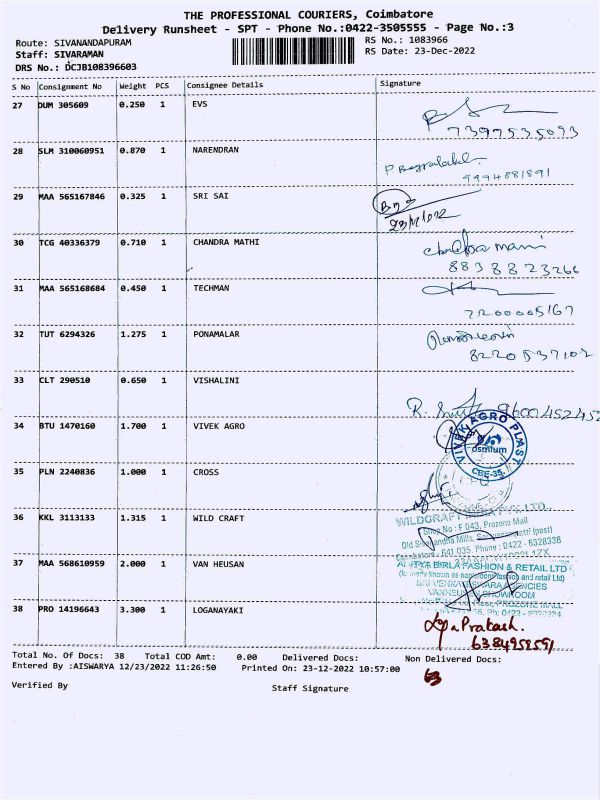 THE PROFESSIONAL COURIERS, Coimbatore
Delivery Runsheet - SPT - Phone No.:0422-3505555 - Page No.:3
Route: SIVANANDAPURAM
RS No.: 1083966
Staff: SIVARAMAN
RS Date: 23-Dec-2022
DRS No.: DCJB108396603
S No Consignment No Weight PCS Consignee Details Signature
27 DUM 305609 0.250 1 EVS
7397535093
28 SLM 310060951 0.870 1 NARENDRAN
9994881891
29 MAA 565167846 0.325 1 SRI SAI
30 TCG 40336379 0.710 1 CHANDRA MATHI
8838823266
31 MAA 565168684 0.450 1 TECHMAN
7200005167
32 TUT 6294326 1.275 1 PONAMALAR
8220537102
33 CLT 290510 0.650 1 VISHALINI
34 BTU 1470160 1.700 1 VIVEK AGRO
VIVEK AGRO PLAST
osmium
CBE-35.
35 PLN 2240836 1.000 1 CROSS
36 KKL 3113133 1.315 1 WILD CRAFT
WILDCRAFT
Shop No : F 043, Prozone Mall
37 MAA 568610959 2.000 1 VAN HEUSAN
ADITYA BIRLA FASHION & RETAIL LTD
38 PRO 14196643 3.300 1 LOGANAYAKI
Prakash.
Total No. Of Docs: 38 Total COD Amt: 0.00 Delivered Docs: Non Delivered Docs:
Entered By :AISWARYA 12/23/2022 11:26:50 Printed On: 23-12-2022 10:57:00
Verified By
Staff Signature